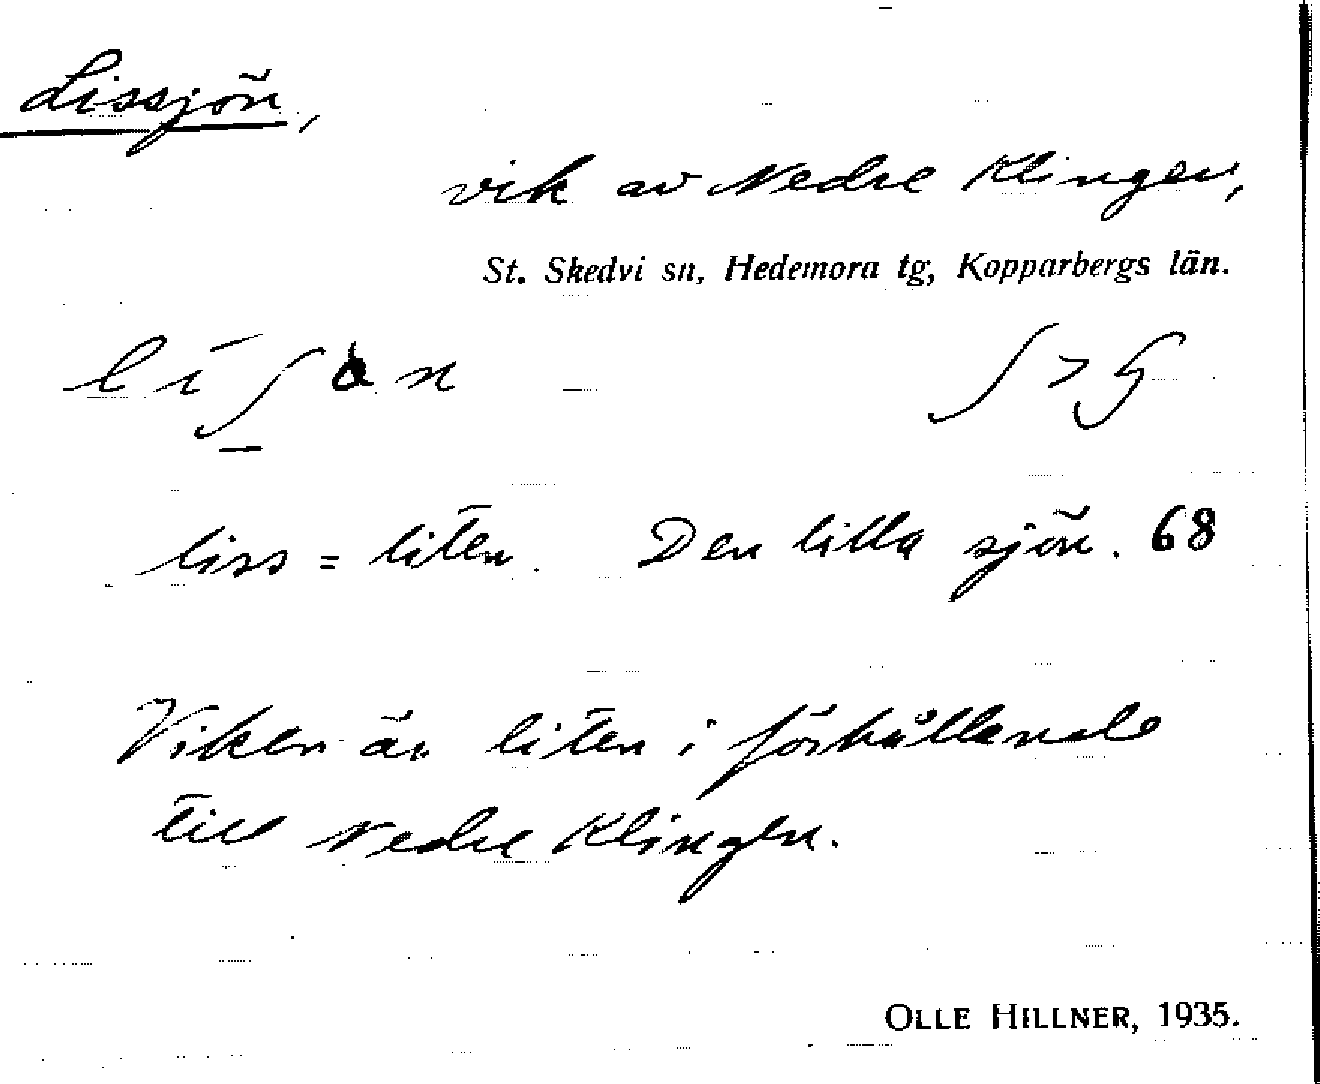 Lissjön,
vik av Nedre Klingen,
St. Skedvi sn, Hedemora tg, Kopparbergs län.
liss = liten. Den lilla sjön. 68
Viken är liten i förhållande
till Nedre Klingen.
OLLE HILLNER, 1935.